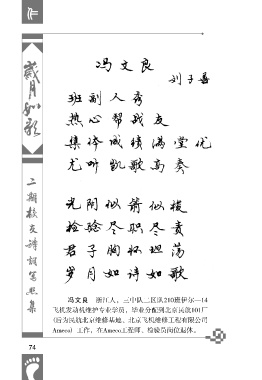 作
岁月如歌
二期校友诗词写照集
冯文良
刘子善
班副人秀
热心帮战友
集体成绩满堂优
尤听凯歌高奏
光阴似箭似梭
检验尽职尽责
君子胸怀坦荡
岁月如诗如歌
冯文良 浙江人，三中队二区队210班伊尔—14
飞机发动机维护专业学员，毕业分配到北京民航101厂
(后为民航北京维修基地、北京飞机维修工程有限公司
Ameco) 工作，在Ameco工程师、检验员岗位退休。
74